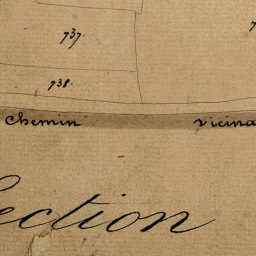 737.
738.
Chemin vicina
ection